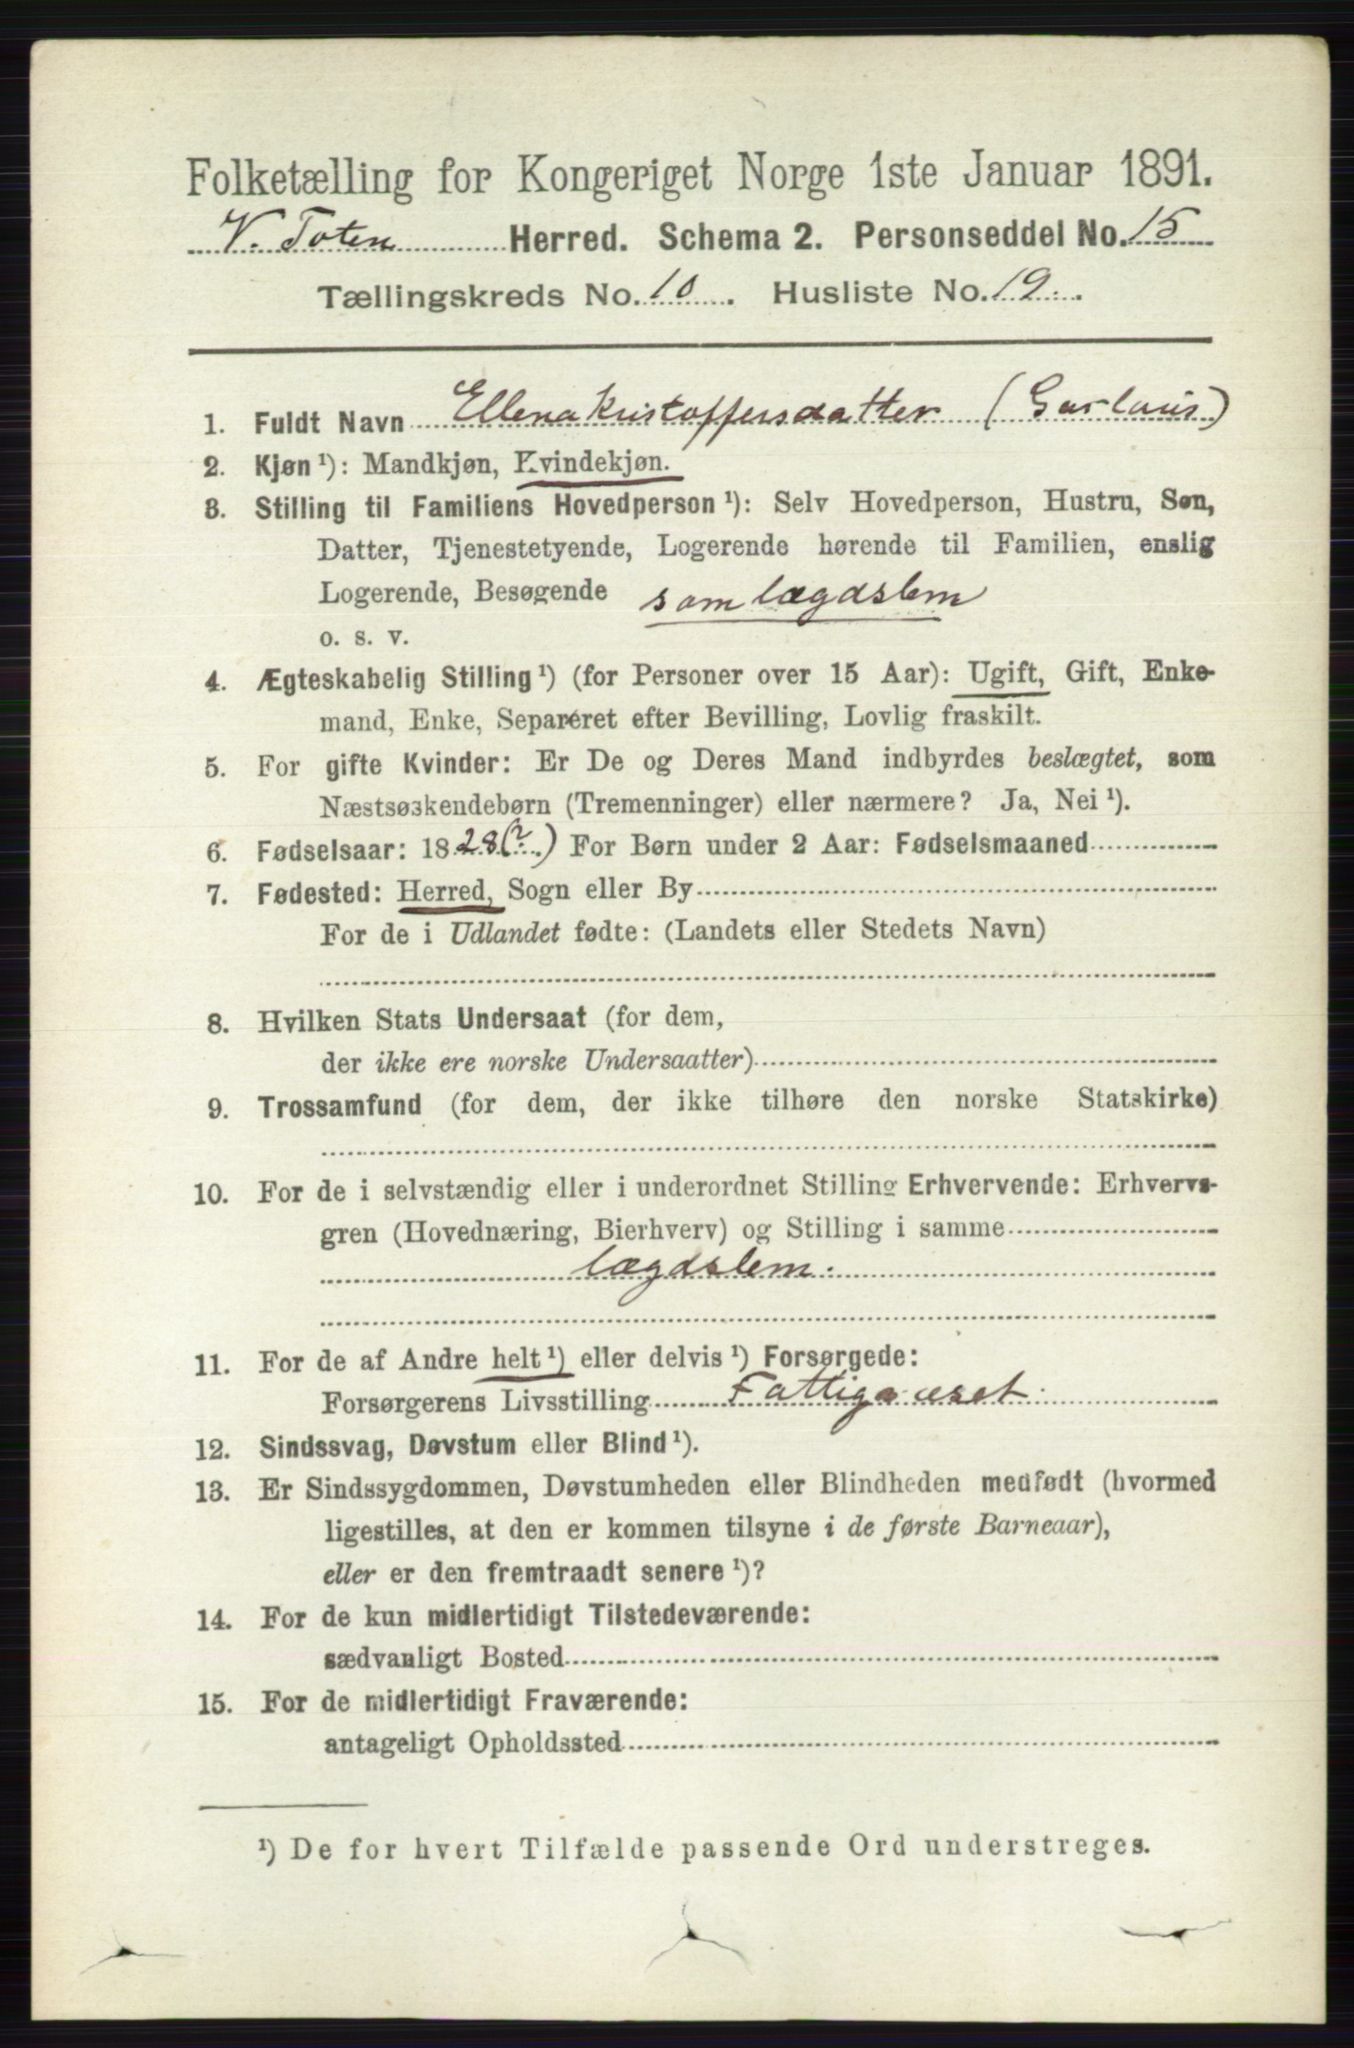 Folketælling for Kongeriget Norge 1ste Januar 1891.
V. Toten Herred. Schema 2. Personseddel No. 15
Tællingskreds No. 10. Husliste No. 19.
1. Fuldt Navn Ellena Kristoffersdatter (
2. Kjøn ¹): Mandkjøn, Kvindekjøn.
3. Stilling til Familiens Hovedperson ¹): Selv Hovedperson, Hustru, Søn,
Datter, Tjenestetyende, Logerende hørende til Familien, enslig
Logerende, Besøgende som lægdslem
o. s. v.
4. Ægteskabelig Stilling ¹) (for Personer over 15 Aar): Ugift, Gift, Enke-
mand, Enke, Separeret efter Bevilling, Lovlig fraskilt.
5. For gifte Kvinder: Er De og Deres Mand indbyrdes beslægtet, som
Næstsøskendebørn (Tremenninger) eller nærmere? Ja, Nei ¹).
6. Fødselsaar: 1828(?) For Børn under 2 Aar: Fødselsmaaned
7. Fødested: Herred, Sogn eller By
For de i Udlandet fødte: (Landets eller Stedets Navn)
8. Hvilken Stats Undersaat (for dem,
der ikke ere norske Undersaatter)
9. Trossamfund (for dem, der ikke tilhøre den norske Statskirke)
10. For de i selvstændig eller i underordnet Stilling Erhvervende: Erhvervs-
gren (Hovednæring, Bierhverv) og Stilling i samme
lægdslem.
11. For de af Andre helt ¹) eller delvis ¹) Forsørgede:
Forsørgerens Livsstilling Fattigvæset
12. Sindssvag, Døvstum eller Blind ¹).
13. Er Sindssygdommen, Døvstumheden eller Blindheden medfødt (hvormed
ligestilles, at den er kommen tilsyne i de første Barneaar),
eller er den fremtraadt senere ¹)?
14. For de kun midlertidigt Tilstedeværende:
sædvanligt Bosted
15. For de midlertidigt Fraværende:
antageligt Opholdssted
¹) De for hvert Tilfælde passende Ord understreges.